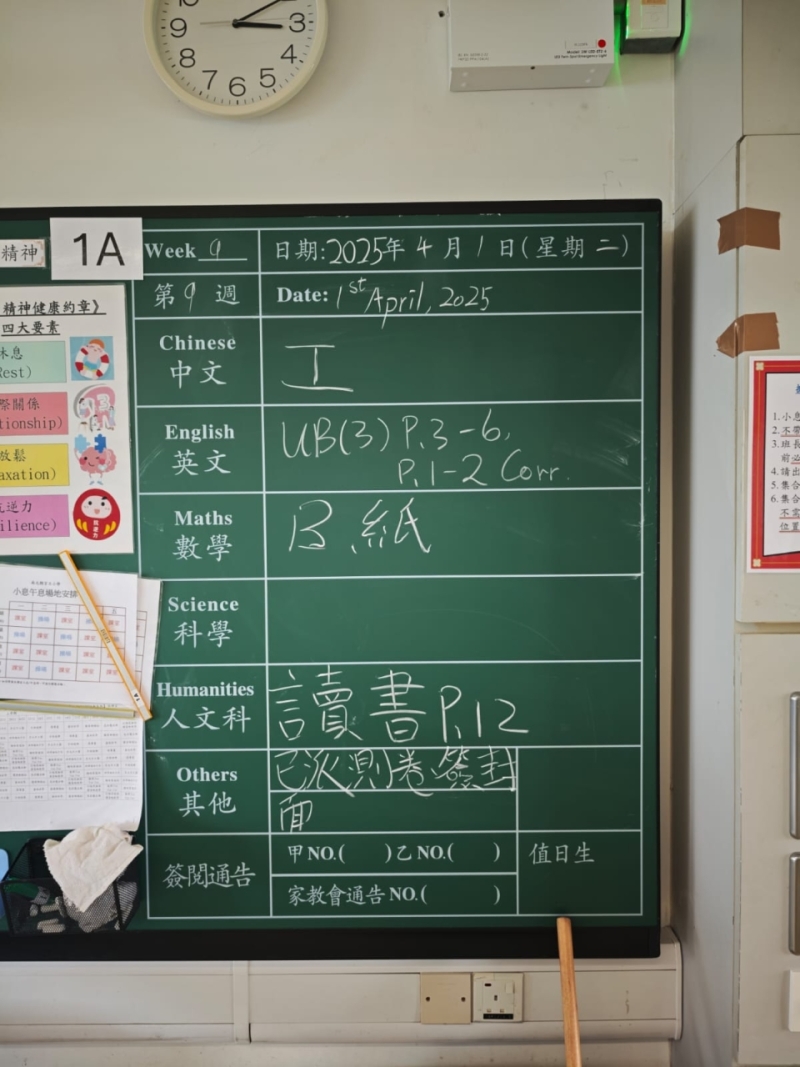 9 3
8 4
7 6 5
精神
1A
Week 9
日期:2025年4月1日(星期二)
第9週
Date: 1st April, 2025
精神健康約章》
四大要素
休息
Rest)
際關係
tionship)
放鬆
axation)
抗逆力
ilience)
Chinese
中文
工
English
英文
UB(3) P.3-6,
P.1-2 Corr.
Maths
數學
B.紙
Science
科學
Humanities
人文科
讀書P.12
Others
其他
已派測卷簽封
面
簽閱通告
甲NO.( )乙NO.( )
家教會通告NO.( )
值日生
小息午息場地安排
1. 小息
2. 不帶
3. 班長
前必
4. 請出
5. 集合
6. 集合
不需
位置